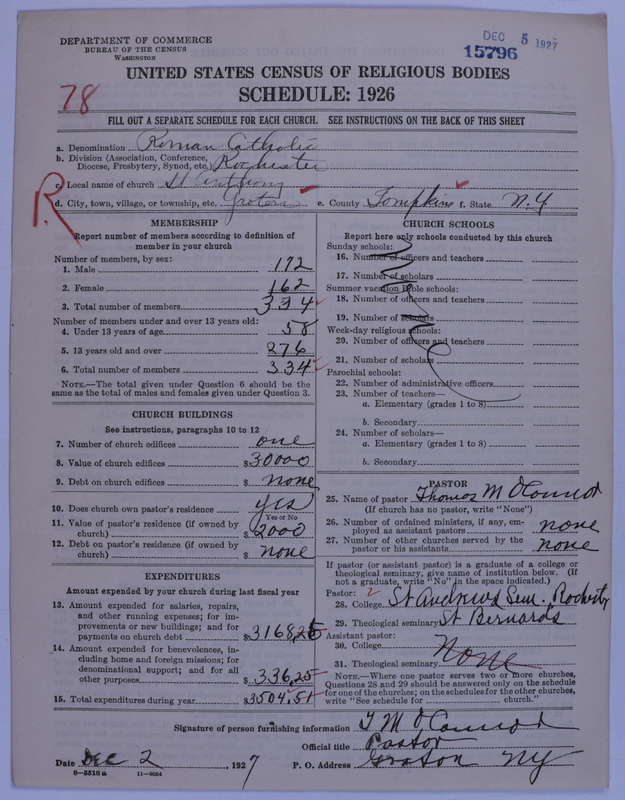 DEPARTMENT OF COMMERCE
BUREAU OF THE CENSUS
WASHINGTON
DEC 5 1927
15796
UNITED STATES CENSUS OF RELIGIOUS BODIES
SCHEDULE: 1926
78
FILL OUT A SEPARATE SCHEDULE FOR EACH CHURCH. SEE INSTRUCTIONS ON THE BACK OF THIS SHEET
a. Denomination Roman Catholic
b. Division (Association, Conference, Diocese, Presbytery, Synod, etc.) Rochester
c. Local name of church St Anthony
R
d. City, town, village, or township, etc. Groton e. County Tompkins f. State N.Y
MEMBERSHIP
Report number of members according to definition of
member in your church
Number of members, by sex:
1. Male 172
2. Female 162
3. Total number of members 334
Number of members under and over 13 years old:
4. Under 13 years of age 58
5. 13 years old and over 276
6. Total number of members 334
NOTE.—The total given under Question 6 should be
same as the total of males and females given under Question 3.
CHURCH BUILDINGS
See instructions, paragraphs 10 to 12
7. Number of church edifices one
8. Value of church edifices $30000
9. Debt on church edifices $ none
10. Does church own pastor's residence yes
Yes or No
11. Value of pastor's residence (if owned by
church) $2000
12. Debt on pastor's residence (if owned by
church) $ none
EXPENDITURES
Amount expended by your church during last fiscal year
13. Amount expended for salaries, repairs,
and other running expenses; for im-
provements or new buildings; and for
payments on church debt $3168,25
14. Amount expended for benevolences, in-
cluding home and foreign missions; for
denominational support; and for all
other purposes $336,25
15. Total expenditures during year $3504.51
CHURCH SCHOOLS
Report here only schools conducted by this church
Sunday schools:
16. Number of officers and teachers
17. Number of scholars
Summer vacation Bible schools:
18. Number of officers and teachers
19. Number of scholars
Week-day religious schools:
20. Number of officers and teachers
21. Number of scholars
Parochial schools:
22. Number of administrative officers
23. Number of teachers—
a. Elementary (grades 1 to 8)
b. Secondary
24. Number of scholars—
a. Elementary (grades 1 to 8)
b. Secondary
PASTOR
25. Name of pastor Thomas M O'Connor
(If church has no pastor, write "None")
26. Number of ordained ministers, if any, em-
ployed as assistant pastors none
27. Number of other churches served by the
pastor or his assistants none
If pastor (or assistant pastor) is a graduate of a college or
theological seminary, give name of institution below. (If
not a graduate, write "No" in the space indicated.)
Pastor:
28. College St Andrews Sem. Rochester
29. Theological seminary St Bernards
Assistant pastor:
30. College
31. Theological seminary None
NOTE.—Where one pastor serves two or more churches,
Questions 28 and 29 should be answered only on the schedule
for one of the churches; on the schedules for the other churches,
write "See schedule for church."
Signature of person furnishing information T M O'Connor
Official title Pastor
Date Dec 2, 1927 P. O. Address Groton NY
8—5518a 11—9664